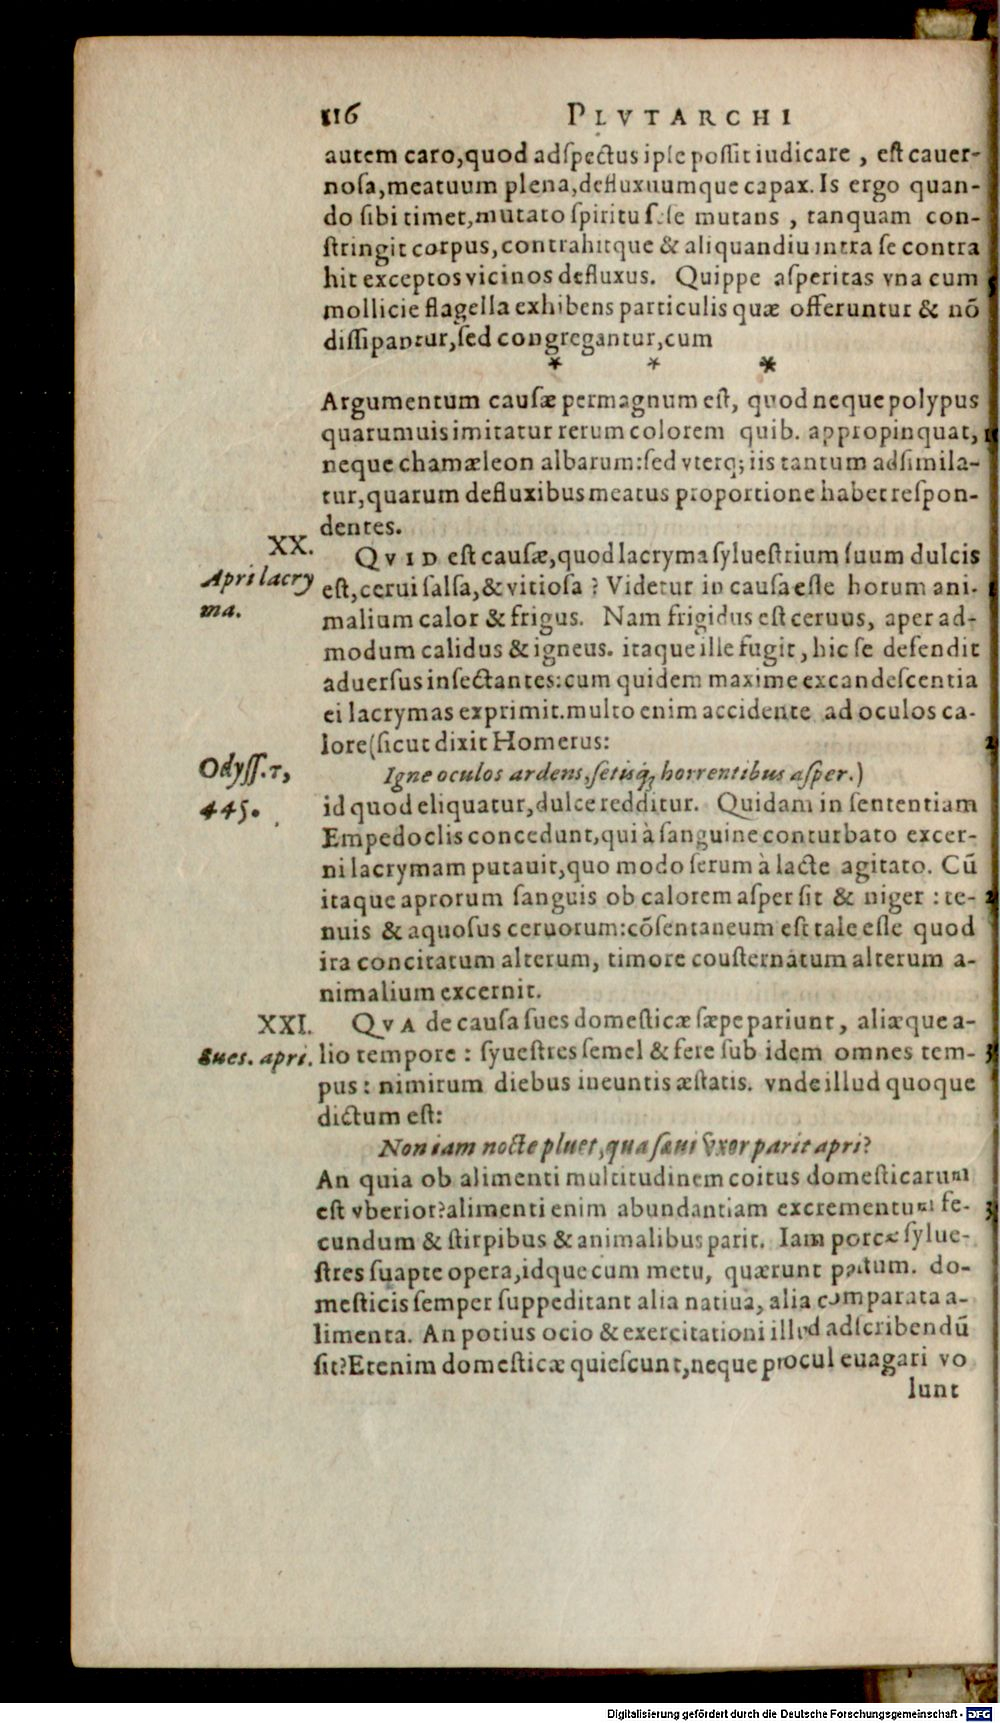 116 PLVTARCHI
autem caro,quod adſpectus ipſe poſſit iudicare , eſt cauer-
noſa,meatuum plena,defluxuumque capax. Is ergo quan-
do ſibi timet,mutato ſpiritu ſeſe mutans , tanquam con-
ſtringit corpus,contrahitque & aliquandiu intra ſe contra
hit exceptos vicinos defluxus. Quippe aſperitas vna cum
mollicie flagella exhibens particulis quæ offeruntur & nō
diſſipantur,ſed congregantur,cum
* * *
Argumentum cauſæ permagnum eſt, quod neque polypus
quarumuis imitatur rerum colorem quib. appropinquat,
neque chamæleon albarum:ſed vterq; iis tantum adſimila-
tur,quarum defluxibus meatus proportione habet reſpon-
dentes.
XX.
Apri lacry
ma.
QVID eſt cauſæ,quod lacryma ſylueſtrium ſuum dulcis
eſt,cerui ſalſa,& vitioſa ? Videtur in cauſa eſſe horum ani-
malium calor & frigus. Nam frigidus eſt ceruus, aper ad-
modum calidus & igneus. itaque ille fugit, hic ſe defendit
aduerſus inſectantes:cum quidem maxime excandeſcentia
ei lacrymas exprimit.multo enim accidente ad oculos ca-
lore(ſicut dixit Homerus:
Odyſſ.τ,
445.
Igne oculos ardens,ſetisq; horrentibus aſper.)
id quod eliquatur,dulce redditur. Quidam in ſententiam
Empedoclis concedunt,qui à ſanguine conturbato excer-
ni lacrymam putauit,quo modo ſerum à lacte agitato. Cū
itaque aprorum ſanguis ob calorem aſper ſit & niger : te-
nuis & aquoſus ceruorum:cōſentaneum eſt tale eſſe quod
ira concitatum alterum, timore couſternatum alterum a-
nimalium excernit.
XXI.
Sues. apri.
QVA de cauſa ſues domeſticæ ſæpe pariunt, aliæque a-
lio tempore : ſyueſtres ſemel & fere ſub idem omnes tem-
pus : nimirum diebus ineuntis æſtatis. vnde illud quoque
dictum eſt:
Non iam nocte pluet,qua ſæui vxor parit apri?
An quia ob alimenti multitudinem coitus domeſticarum
eſt vberior?alimenti enim abundantiam excrementum fe-
cundum & ſtirpibus & animalibus parit. Iam porcæ ſylue-
ſtres ſuapte opera,idque cum metu, quærunt paſtum. do-
meſticis ſemper ſuppeditant alia natiua, alia comparata a-
limenta. An potius ocio & exercitationi illud adſcribendū
ſit?Etenim domeſticæ quieſcunt,neque procul euagari vo
lunt
Digitalisierung gefördert durch die Deutsche Forschungsgemeinschaft - DFG